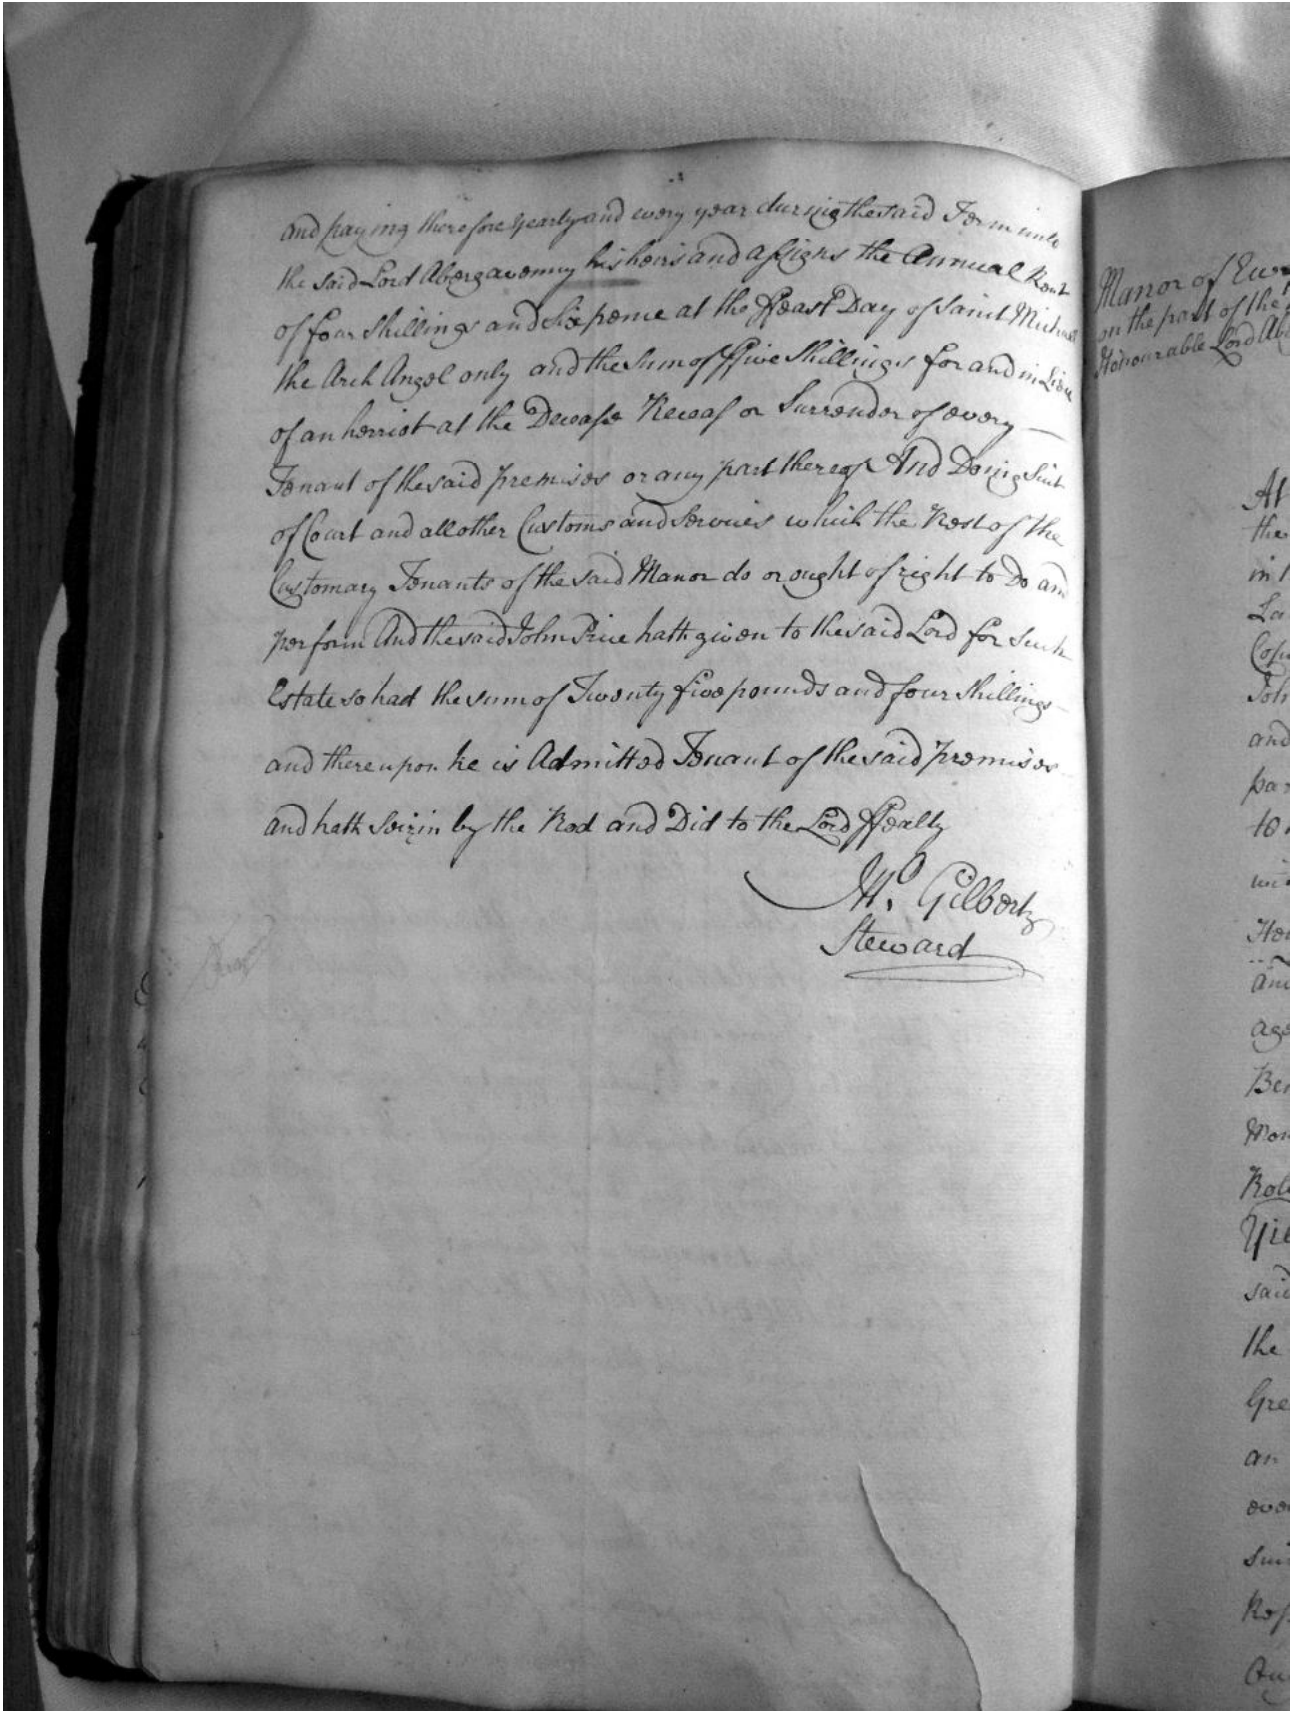 and paying therefore yearly and every year during the said Term unto
the said Lord Abergavenny his heirs and assigns the Annual Rent
of four shillings and Six pence at the ffeast Day of Saint Michael
the Arch Angel only and the Sum of ffive Shillings for and in Lieu
of an herriot at the Decease Recess or Surrender of every
Tenant of the said premises or any part thereof And Doing Suit
of Court and all other Customs and Services which the Rest of the
Customary Tenants of the said Manor do or ought of right to Do and
perform And the said John Price hath given to the said Lord for Such
Estate so had the sum of Twenty five pounds and four shillings
and thereupon he is Admitted Tenant of the said premises
and hath Seizin by the Rod and Did to the Lord ffealty
Gilbert
Steward
Manor of
on the part of the
Honourable Lord
At
the
in
and
to
said
the
an